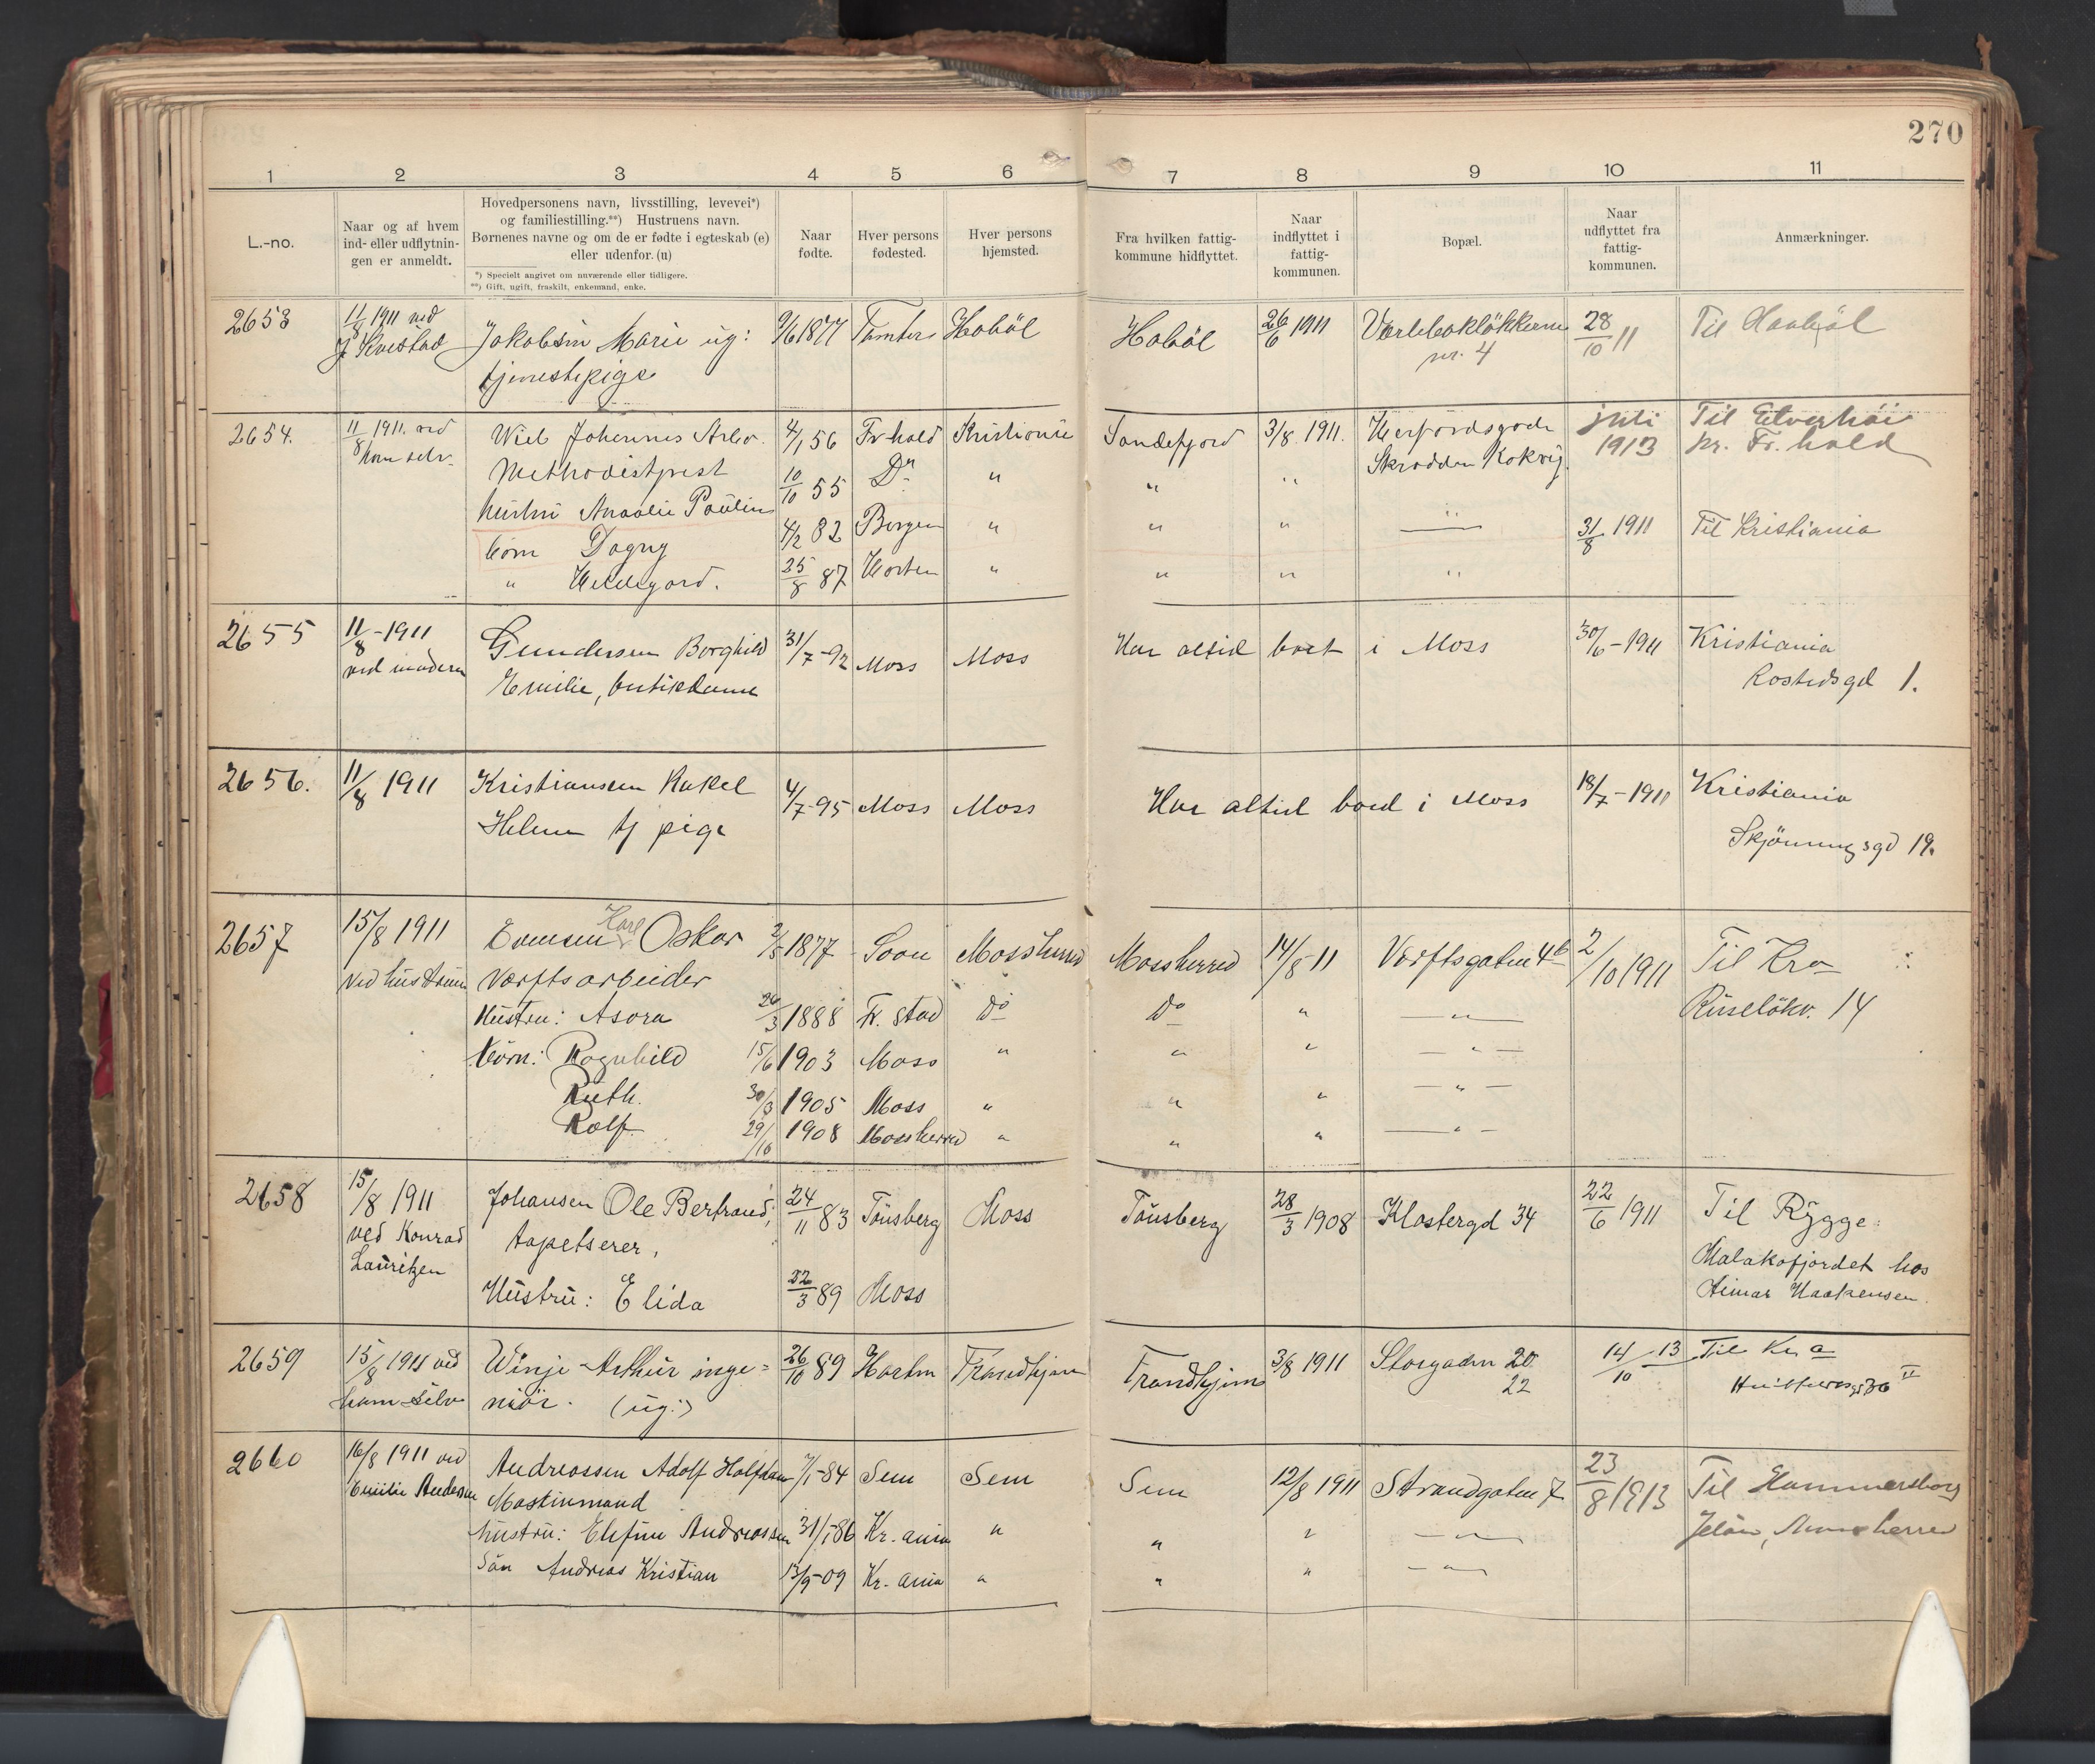 270
1 2 3 4 5 6 7 8 9 10 11
L.-no.
Naar og af hvem
ind- eller udflytnin-
gen er anmeldt.
Hovedpersonens navn, livsstilling, levevei*)
og familiestilling.**) Hustruens navn.
Børnenes navne og om de er fødte i egteskab (e)
eller udenfor. (u)
*) Specielt angivet om nuværende eller tidligere.
**) Gift, ugift, fraskilt, enkemand, enke.
Naar
fødte.
Hver persons
fødested.
Hver persons
hjemsted.
Fra hvilken fattig-
kommune hidflyttet.
Naar
indflyttet i
fattig-
kommunen.
Bopæl.
Naar
udflyttet fra
fattig-
kommunen.
Anmærkninger.
2653 11/8 1911 ved Jakobsen Marie ug: 9/6 1877 Hobøl Hobøl 26/6 1911 28/10 11 Til
J. Kvestad tjenestepige nr. 4
2654. 11/8 1911. ved Wiel Johannes Arbo. 4/1 56 Fr.hald Kristiania Sandefjord 3/8 1911. juli Til
ham selv. Methodistprest 1913 pr. Fr.hald
hustru Paulin 10/10 55 Do " " " 
børn Dagny 4/2 82 Bergen " " " " 31/8 1911 Til Kristiania
" Hildegard. 25/8 87 Horten " " " "
2655 11/8-1911 Gundersen Borghild 31/7-92 Moss Moss Har altid boet i Moss 30/6-1911 Kristiania
ved moderen Emilie, butikdame Rostedsgd 1.
2656. 11/8 1911 Kristiansen Rakel 4/7-95 Moss Moss Har altid boed i Moss 18/7-1911 Kristiania
Helene tj pige Skjønningsgd 19.
2657 15/8 1911 Evensen Karl Oskar 2/5 1877 Soon Mossherred Mossherred 14/8 11 Værftsgaten 46 2/10 1911 Til Kra
Ved hustruen Værftsarbeider Ruseløkv. 14
Hustru: Asora 26/3 1888 Fr. stad Do Do " "
børn: Ragnhild 15/6 1903 Moss " " " "
Ruth. 30/3 1905 Moss " " " "
Rolf. 29/10 1908 Mossherred " " " "
2658 15/8 1911 Johansen Ole Bertrand, 24/11 83 Tønsberg Moss Tønsberg 28/3 1908 Klostergd 34 22/6 1911 Til Rygge:
ved Konrad tapetserer, Malakofjordet hos
Lauritzen Hustru: Elida 22/3 89 Moss Haakensen.
2659 15/8 1911 ved Winje Arthur inge= 26/10 89 Horten Trondhjem Trondhjem 3/8 1911 Storgaden 20 14/10 13 Til Kra
ham selv niør. (ug:) 22 Huitfeldtsgt 36 II
2660 16/8 1911 ved Andreassen Adolf Halfdan 7/1-84 Sem Sem Sem 12/8 1911 Strandgaten 7 23/8 1913 Til Hammersborg
Emilie Andersen Maskinmand Jeløen, Mossherred
hustru: Andreassen 31/1-86 Kr.ania " " " "
Søn Andreas Kristian 13/9-09 Kr.ania " " " "